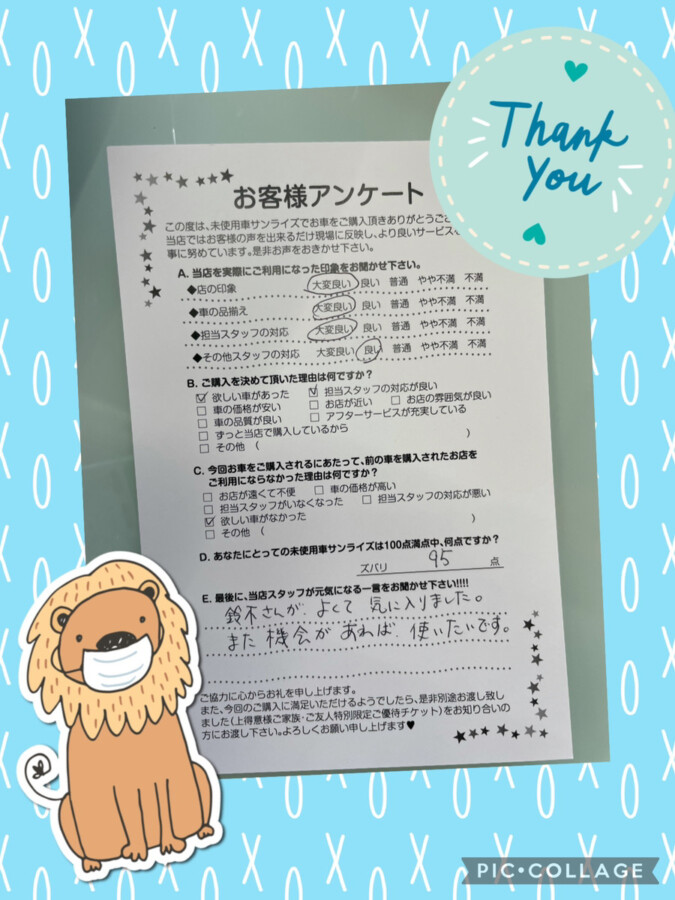 Thank
You
お客様アンケート
この度は、未使用車サンライズでお車をご購入頂きありがとうござ
当店ではお客様の声を出来るだけ現場に反映し、より良いサービスを
事に努めています。是非お声をおきかせ下さい。
A. 当店を実際にご利用になった印象をお聞かせ下さい。
◆店の印象 大変良い 良い 普通 やや不満 不満
◆車の品揃え 大変良い 良い 普通 やや不満 不満
◆担当スタッフの対応 大変良い 良い 普通 やや不満 不満
◆その他スタッフの対応 大変良い 良い 普通 やや不満 不満
B. ご購入を決めて頂いた理由は何ですか？
☑ 欲しい車があった ☑ 担当スタッフの対応が良い
□ 車の価格が安い □ お店が近い □ お店の雰囲気が良い
□ 車の品質が良い □ アフターサービスが充実している
□ ずっと当店で購入しているから
□ その他 ( )
C. 今回お車をご購入されるにあたって、前の車を購入されたお店を
ご利用にならなかった理由は何ですか？
□ お店が遠くて不便 □ 車の価格が高い
□ 担当スタッフがいなくなった □ 担当スタッフの対応が悪い
☑ 欲しい車がなかった
□ その他 ( )
D. あなたにとっての未使用車サンライズは100点満点中、何点ですか？
ズバリ 95 点
E. 最後に、当店スタッフが元気になる一言をお聞かせ下さい!!!!
鈴木さんが、よくて 気に入りました。
また 機会が あれば、使いたいです。
ご協力に心からお礼を申し上げます。
また、今回のご購入に満足いただけるようでしたら、是非別途お渡し致し
ました(上得意様ご家族・ご友人特別限定ご優待チケット)をお知り合いの
方にお渡し下さい。よろしくお願い申し上げます♥
PIC•COLLAGE